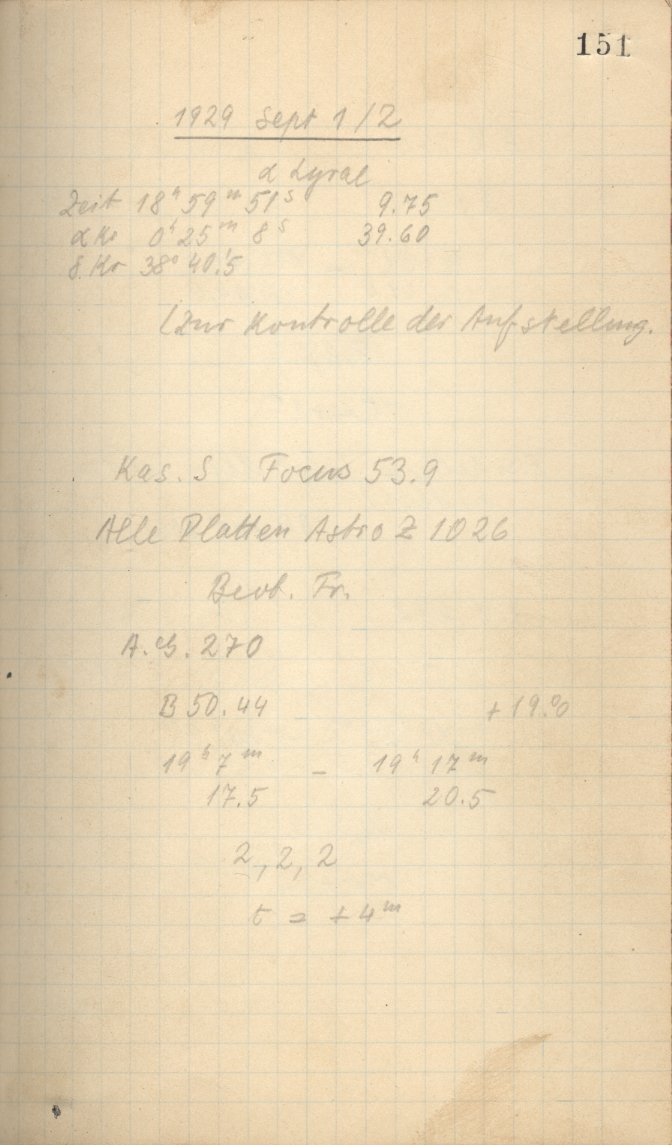 151
1929 Sept 1/2
α Lyrae
Zeit 18ʰ 59ᵐ 51ˢ 9.75
α Kr 0ʰ 25ᵐ 8ˢ 39.60
δ Kr 38° 40.'5
(Zur Kontrolle der Aufstellung.
Kas. S Focus 53.9
Alle Platten Astro Z 1026
Beob. Fr.
A.G. 270
B 50.44 + 19.°0
19ʰ 7ᵐ – 19ʰ 17ᵐ
17.5 20.5
2, 2, 2
t = + 4ᵐ